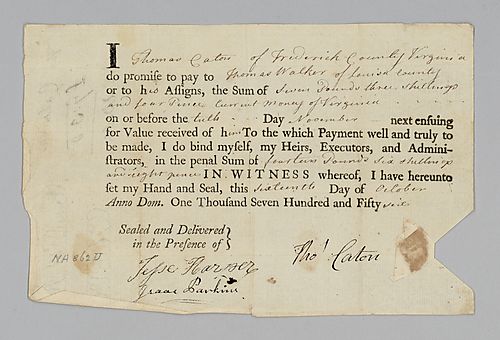 I Thomas Caton of Frederick County Virginia
do promise to pay to Thomas Walker of Louisa County
or to his Assigns, the Sum of Seven Pounds three Shillings
and four Pence Current money of Virginia
on or before the tenth Day November next ensuing
for Value received of him To the which Payment well and truly to
be made, I do bind myself, my Heirs, Executors, and Admini-
strators, in the penal Sum of fourteen Pounds Six Shillings
and eight pence IN WITNESS whereof, I have hereunto
set my Hand and Seal, this sixteenth Day of October
Anno Dom. One Thousand Seven Hundred and Fifty six
Sealed and Delivered
in the Presence of
Thos Caton
Jesse Harper
Isaac Parkins
MA 862 D